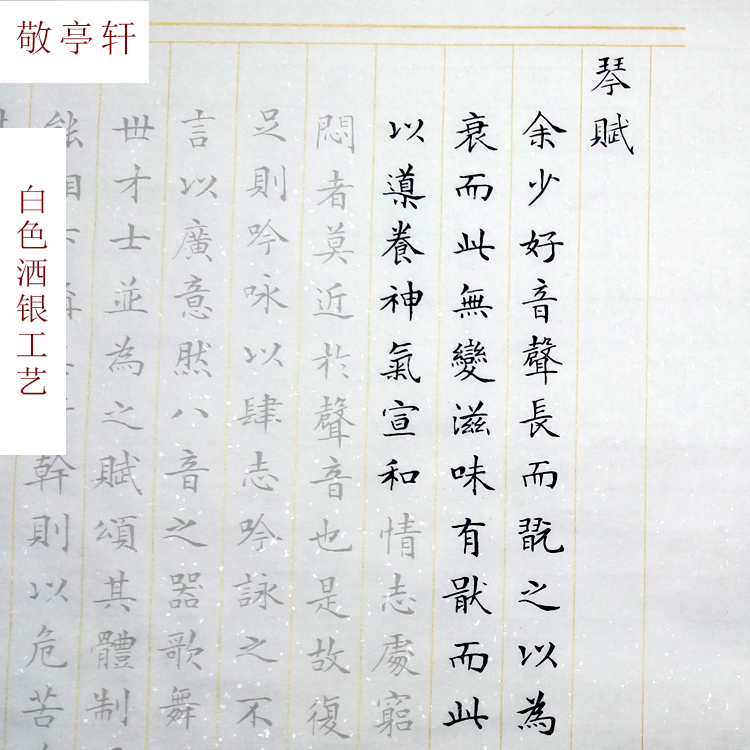 敬亭轩
白色洒银工艺
琴賦
余少好音聲長而翫之以為
衰而此無變滋味有猒而此
以導養神氣宣和情志處窮
悶者莫近於聲音也是故復
足則吟咏以肆志吟詠之不
言以廣意然八音之器歌舞
世才士並為之賦頌其體制
幹則以危苦